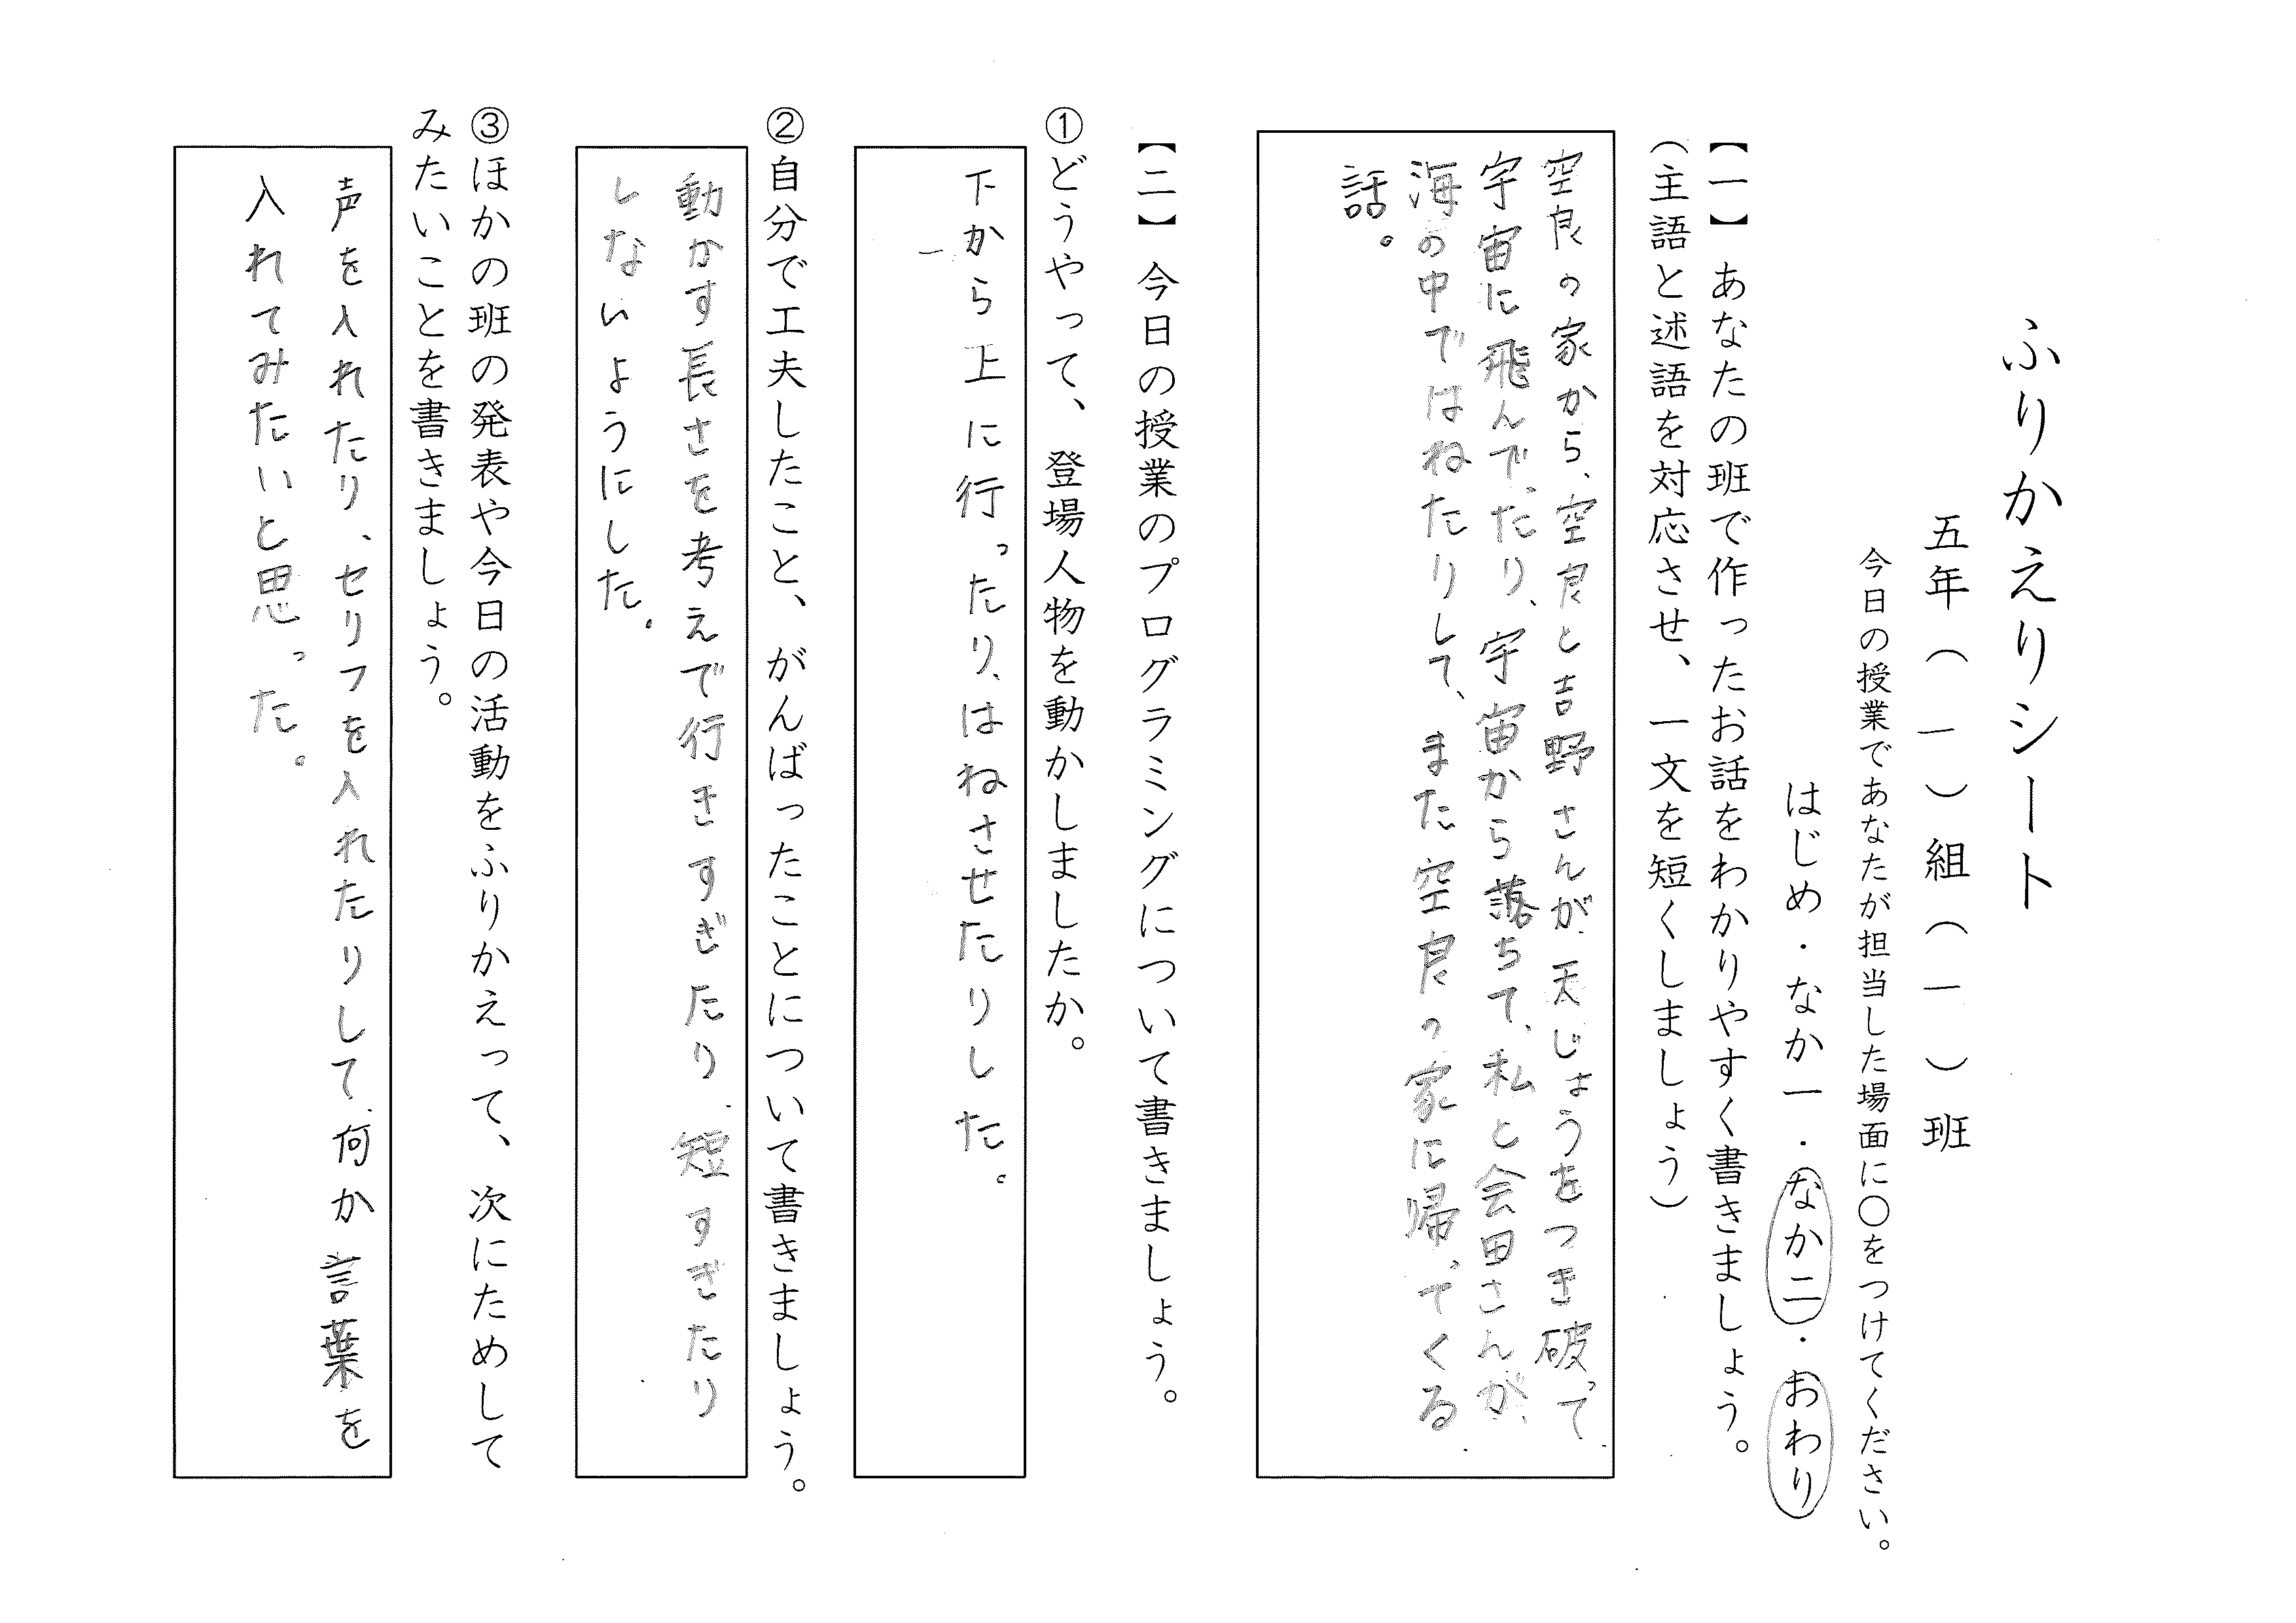 ふりかえりシート
五年（一）組（一）班
今日の授業であなたが担当した場面に○をつけてください。
はじめ・なか一・なか二・おわり
【一】あなたの班で作ったお話をわかりやすく書きましょう。
（主語と述語を対応させ、一文を短くしましょう）
空良の家から、空良と吉野さんが天じょうをつき破って
宇宙に飛んでったり、宇宙から落ちて、私と会田さんが、
海の中ではねたりして、また空良の家に帰ってくる
話。
【二】今日の授業のプログラミングについて書きましょう。
①どうやって、登場人物を動かしましたか。
下から上に行ったり、はねさせたりした。
②自分で工夫したこと、がんばったことについて書きましょう。
動かす長さを考えて行きすぎたり、短すぎたり
しないようにした。
③ほかの班の発表や今日の活動をふりかえって、次にためして
みたいことを書きましょう。
声を入れたり、セリフを入れたりして、何か言葉を
入れてみたいと思った。